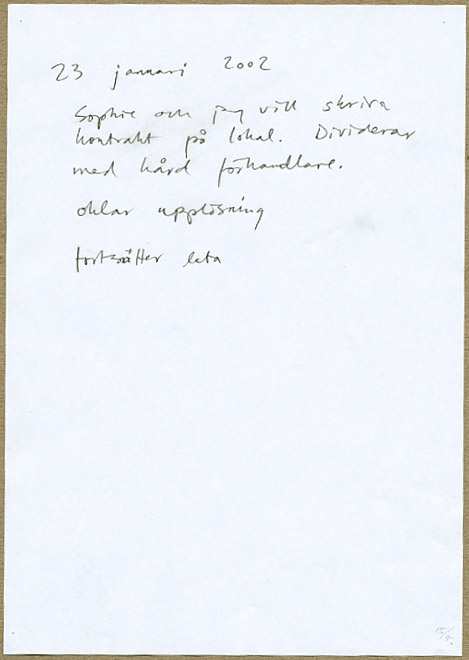 23 januari 2002
Sophie och jag vill skriva
kontrakt på lokal. Dividerar
med hård förhandlare.
oklar upplösning
fortsätter leta